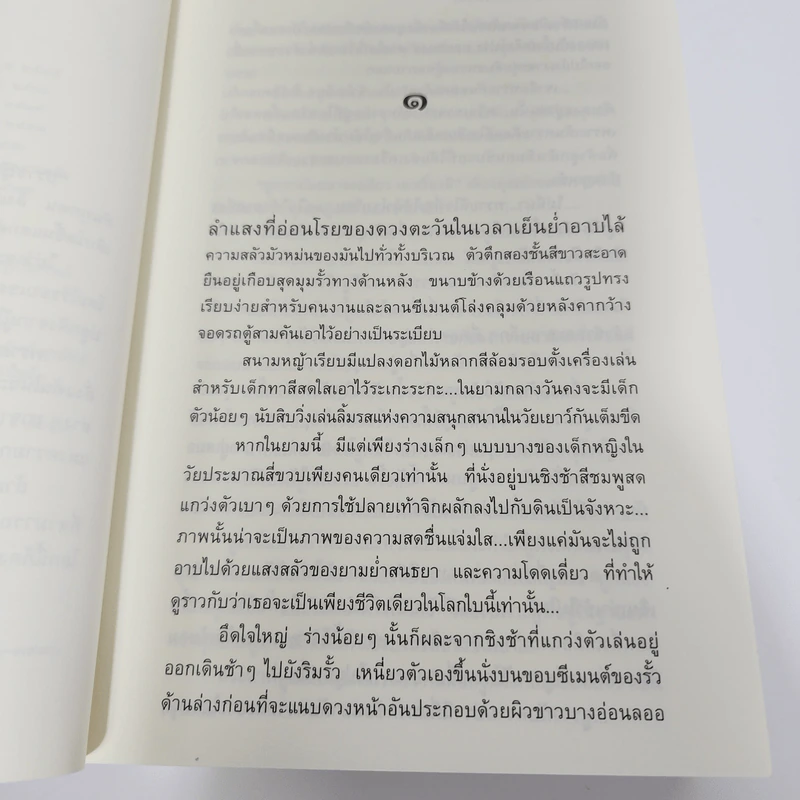 ๑
ลำแสงที่อ่อนโรยของดวงตะวันในเวลาเย็นย่ำอาบไล้
ความสลัวมัวหม่นของมันไปทั่วทั้งบริเวณ ตัวตึกสองชั้นสีขาวสะอาด
ยืนอยู่เกือบสุดมุมรั้วทางด้านหลัง ขนาบข้างด้วยเรือนแถวรูปทรง
เรียบง่ายสำหรับคนงานและลานซีเมนต์โล่งคลุมด้วยหลังคากว้าง
จอดรถตู้สามคันเอาไว้อย่างเป็นระเบียบ
สนามหญ้าเรียบมีแปลงดอกไม้หลากสีล้อมรอบตั้งเครื่องเล่น
สำหรับเด็กทาสีสดใสเอาไว้ระเกะระกะ...ในยามกลางวันคงจะมีเด็ก
ตัวน้อยๆ นับสิบวิ่งเล่นลิ้มรสแห่งความสนุกสนานในวัยเยาว์กันเต็มขีด
หากในยามนี้ มีแต่เพียงร่างเล็กๆ แบบบางของเด็กหญิงใน
วัยประมาณสี่ขวบเพียงคนเดียวเท่านั้น ที่นั่งอยู่บนชิงช้าสีชมพูสด
แกว่งตัวเบาๆ ด้วยการใช้ปลายเท้าจิกผลักลงไปกับดินเป็นจังหวะ...
ภาพนั้นน่าจะเป็นภาพของความสดชื่นแจ่มใส...เพียงแค่มันจะไม่ถูก
อาบไปด้วยแสงสลัวของยามย่ำสนธยา และความโดดเดี่ยว ที่ทำให้
ดูราวกับว่าเธอจะเป็นเพียงชีวิตเดียวในโลกใบนี้เท่านั้น...
อึดใจใหญ่ ร่างน้อยๆ นั้นก็ผละจากชิงช้าที่แกว่งตัวเล่นอยู่
ออกเดินช้าๆ ไปยังริมรั้ว เหนี่ยวตัวเองขึ้นนั่งบนขอบซีเมนต์ของรั้ว
ด้านล่างก่อนที่จะแนบดวงหน้าอันประกอบด้วยผิวขาวบางอ่อนลออ